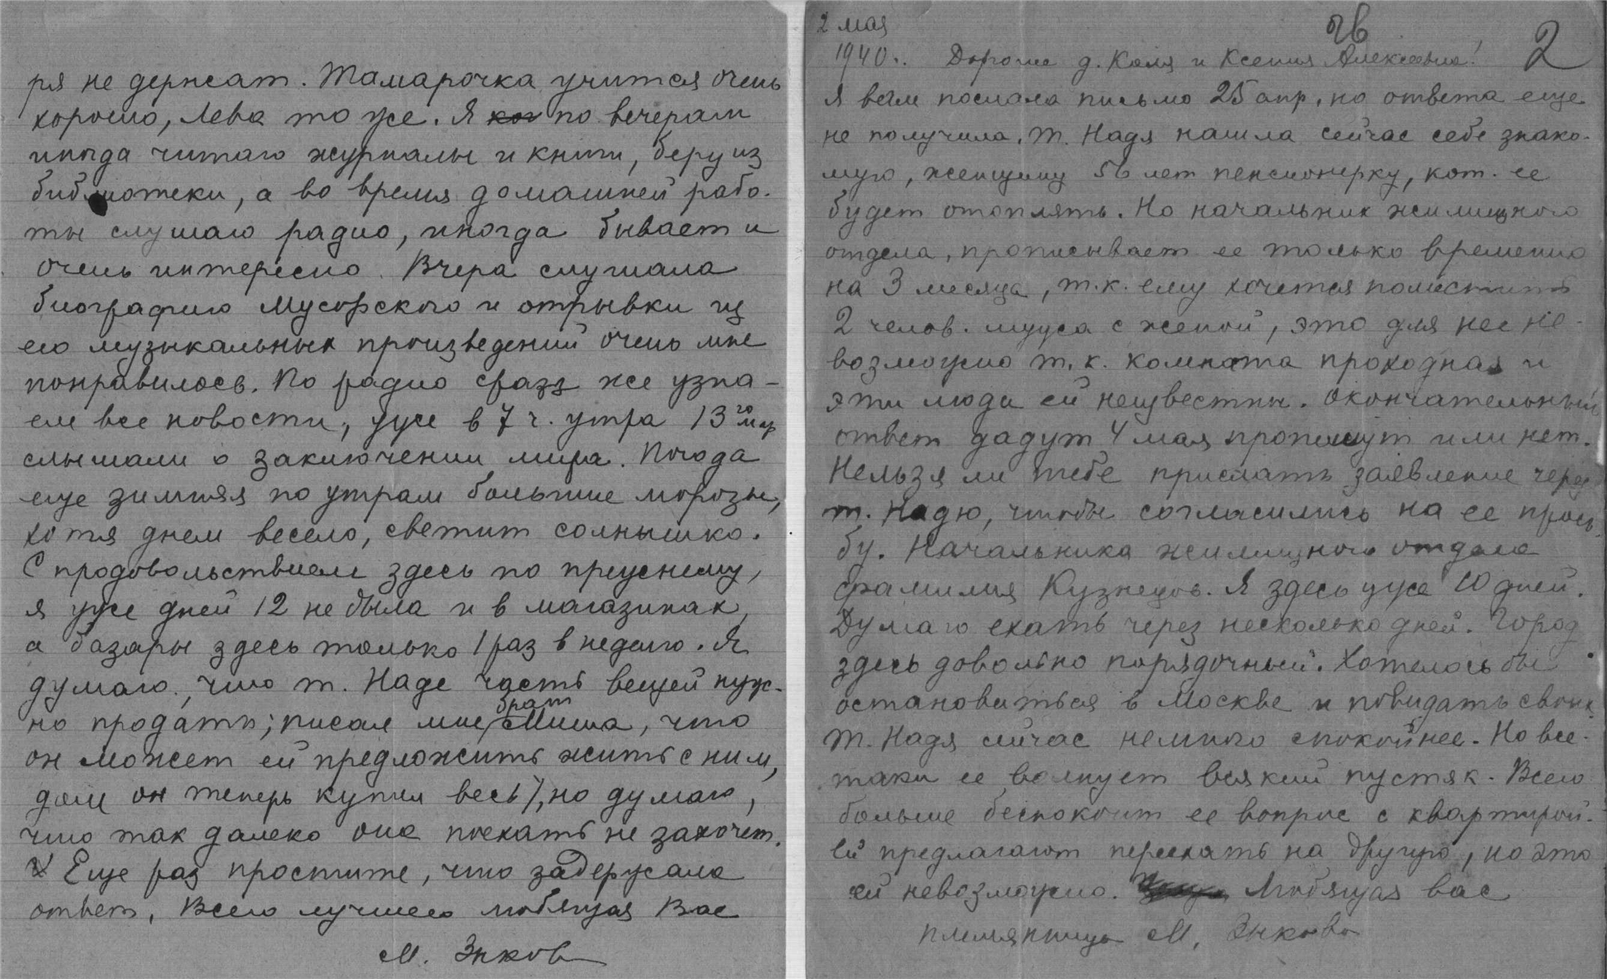 ря не держат. Тамарочка учится очень
хорошо, Лева то же. Я по вечерам
иногда читаю журналы и книги, беру из
библиотеки, а во время домашней рабо-
ты слушаю радио, иногда бывает и
очень интересно. Вчера слушала
биографию Мусоргского и отрывки из
его музыкальных произведений очень мне
понравилось. По радио сразу же узна-
ем все новости, уже в 7 ч. утра 13го мар
слышали о заключении мира. Погода
еще зимняя по утрам большие морозы,
хотя днем весело, светит солнышко.
С продовольствием здесь по прежнему,
я уже дней 12 не была и в магазинах,
а базары здесь только 1 раз в неделю. Я
думаю, что т. Наде часть вещей нуж-
но продать; писал мне брат Миша, что
он может ей предложить жить с ним,
дом он теперь купил весь), но думаю,
что так далеко она поехать не захочет.
Еще раз простите, что задержала
ответ, Всего лучшего любящая Вас
М. Зыкова
2 мая
1940г. Дорогие д. Коля и Ксения Алексеевна!
2
Я вам послала письмо 25 апр, но ответа еще
не получила. Т. Надя нашла сейчас себе знако-
мую, женщину 56 лет пенсионерку, кот. ее
будет отоплять. Но начальник жилищного
отдела, прописывает ее только временно
на 3 месяца, т.к. ему хочется поместить
2 челов. мужа с женой, это для нее не-
возможно т.к. комната проходная и
эти люди ей неизвестны. Окончательный
ответ дадут 4 мая пропишут или нет.
Нельзя ли тебе прислать заявление через
т. Надю, чтобы согласились на ее прось-
бу. Начальника жилищного отдела
фамилия Кузнецов. Я здесь уже 10 дней.
Думаю ехать через несколько дней. Город
здесь довольно порядочный. Хотелось бы
остановиться в Москве и повидать своих.
Т. Надя сейчас немного спокойнее. Но все-
таки ее волнует всякий пустяк. Всего
больше беспокоит ее вопрос с квартирой.
Ей предлагают переехать на другую, но это
ей невозможно. Любящая вас
племянница М. Зыкова